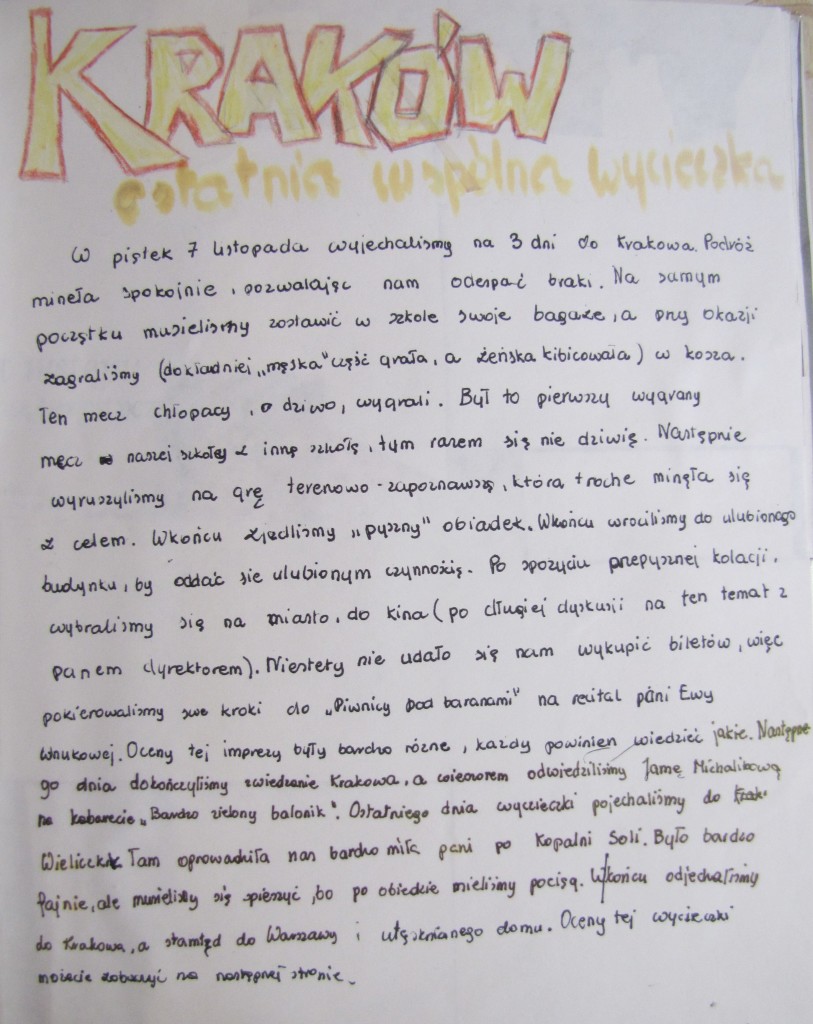 KRAKÓW
ostatnia wspólna wycieczka
W piątek 7 listopada wyjechalismy na 3 dni do Krakowa. Podróż
mineła spokojnie, pozwalając nam odespać braki. Na samym
początku musielismy zostawić w szkole swoje bagaże, a przy okazji
zagraliśmy (dokładniej „męska" część grała, a żeńska kibicowała) w kosza.
Ten mecz chłopacy, o dziwo, wygrali. Był to pierwszy wygrany
mecz naszej szkoły z inną szkołą, tym razem się nie dziwię. Następnie
wyruszylismy na grę terenowo-zapoznawszą, która troche minęła się
z celem. Wkońcu zjedlismy „pyszny" obiadek. Wkońcu wrocilismy do ulubionego
budynku, by oddać sie ulubionym czynnością. Po spożyciu przepysznej kolacji,
wybralismy się na miasto, do kina (po długiej dyskusji na ten temat z
panem dyrektorem). Niestety nie udało się nam wykupić biletów, więc
pokierowalismy swe kroki do „Piwnicy pod baranami" na recital pani Ewy
Wnukowej. Oceny tej imprezy były bardzo różne, każdy powinien wiedzieć jakie. Następne
go dnia dokończyliśmy zwiedzanie Krakowa, a wieczorem odwiedziliśmy Jamę Michalikową
na kabarecie „Bardzo zielony balonik". Ostatniego dnia wycieczki pojechaliśmy do
Wieliczki. Tam oprowadziła nas bardzo miła pani po Kopalni Soli. Było bardzo
fajnie, ale musielismy się spieszyć, bo po obiedzie mieliśmy pociąg. Wkońcu odjechaliśmy
do Krakowa, a stamtąd do Warszawy i utęsknianego domu. Oceny tej wycieczki
możecie zobaczyć na następnej stronie.